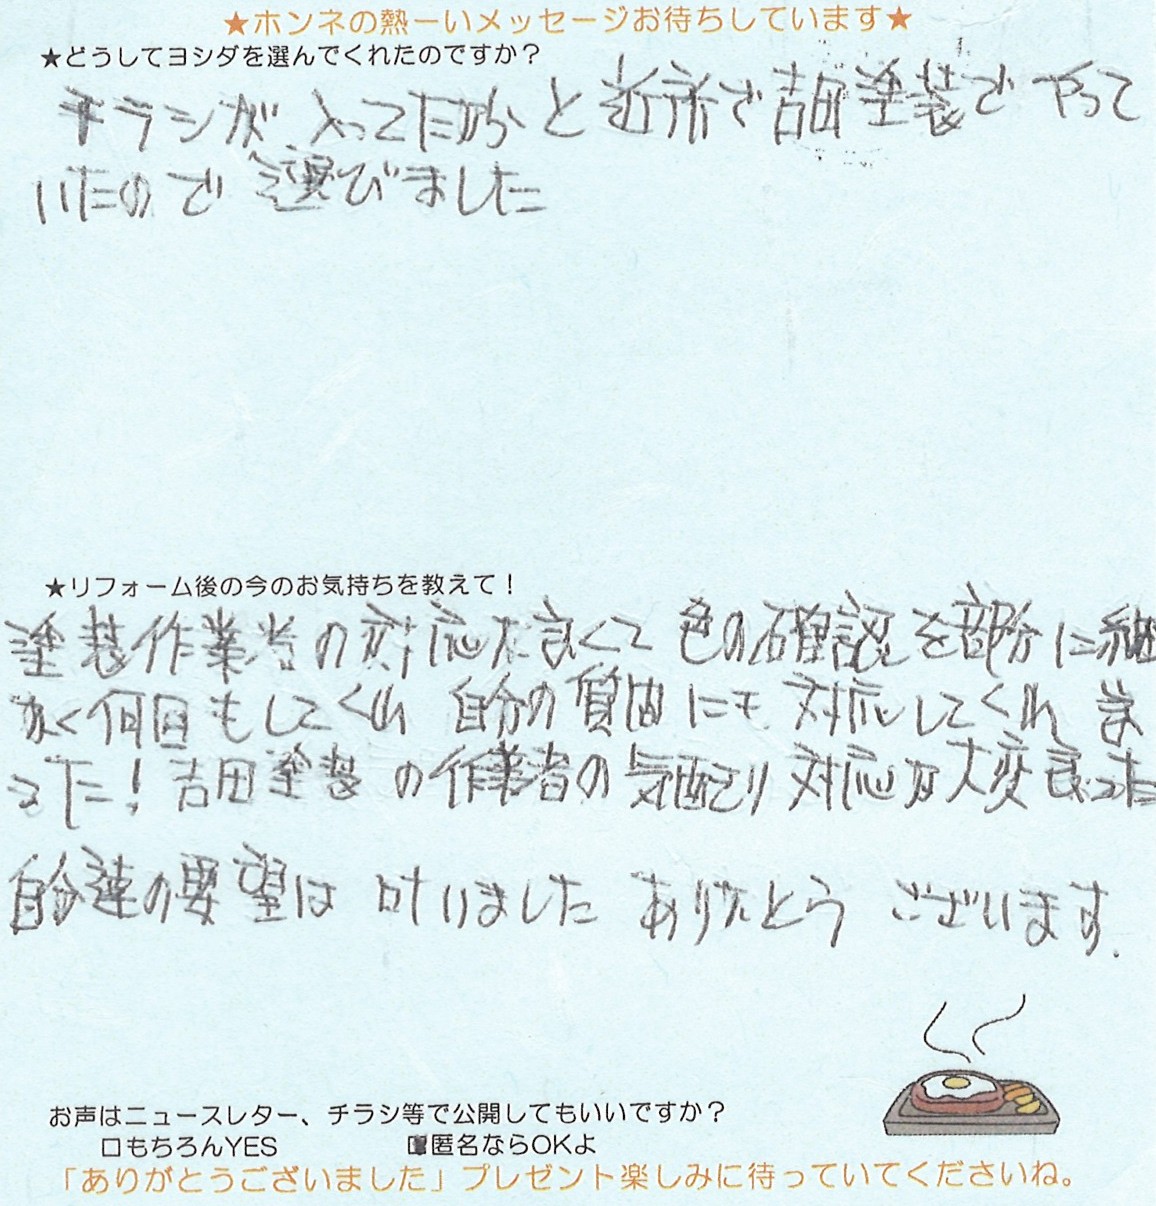 ★ホンネの熱ーいメッセージお待ちしています★
★どうしてヨシダを選んでくれたのですか？
チラシが入ってたからと近所で吉田塗装でやって
いたので選びました
★リフォーム後の今のお気持ちを教えて！
塗装作業者の対応が良くて色の確認を部分に細
かく何回もしてくれ 自分の質問にも対応してくれま
した！吉田塗装の作業者の気配り対応が大変良った
自分達の要望は叶いました ありがとうございます.
お声はニュースレター、チラシ等で公開してもいいですか？
□もちろんYES ■匿名ならOKよ
「ありがとうございました」プレゼント楽しみに待っていてくださいね。